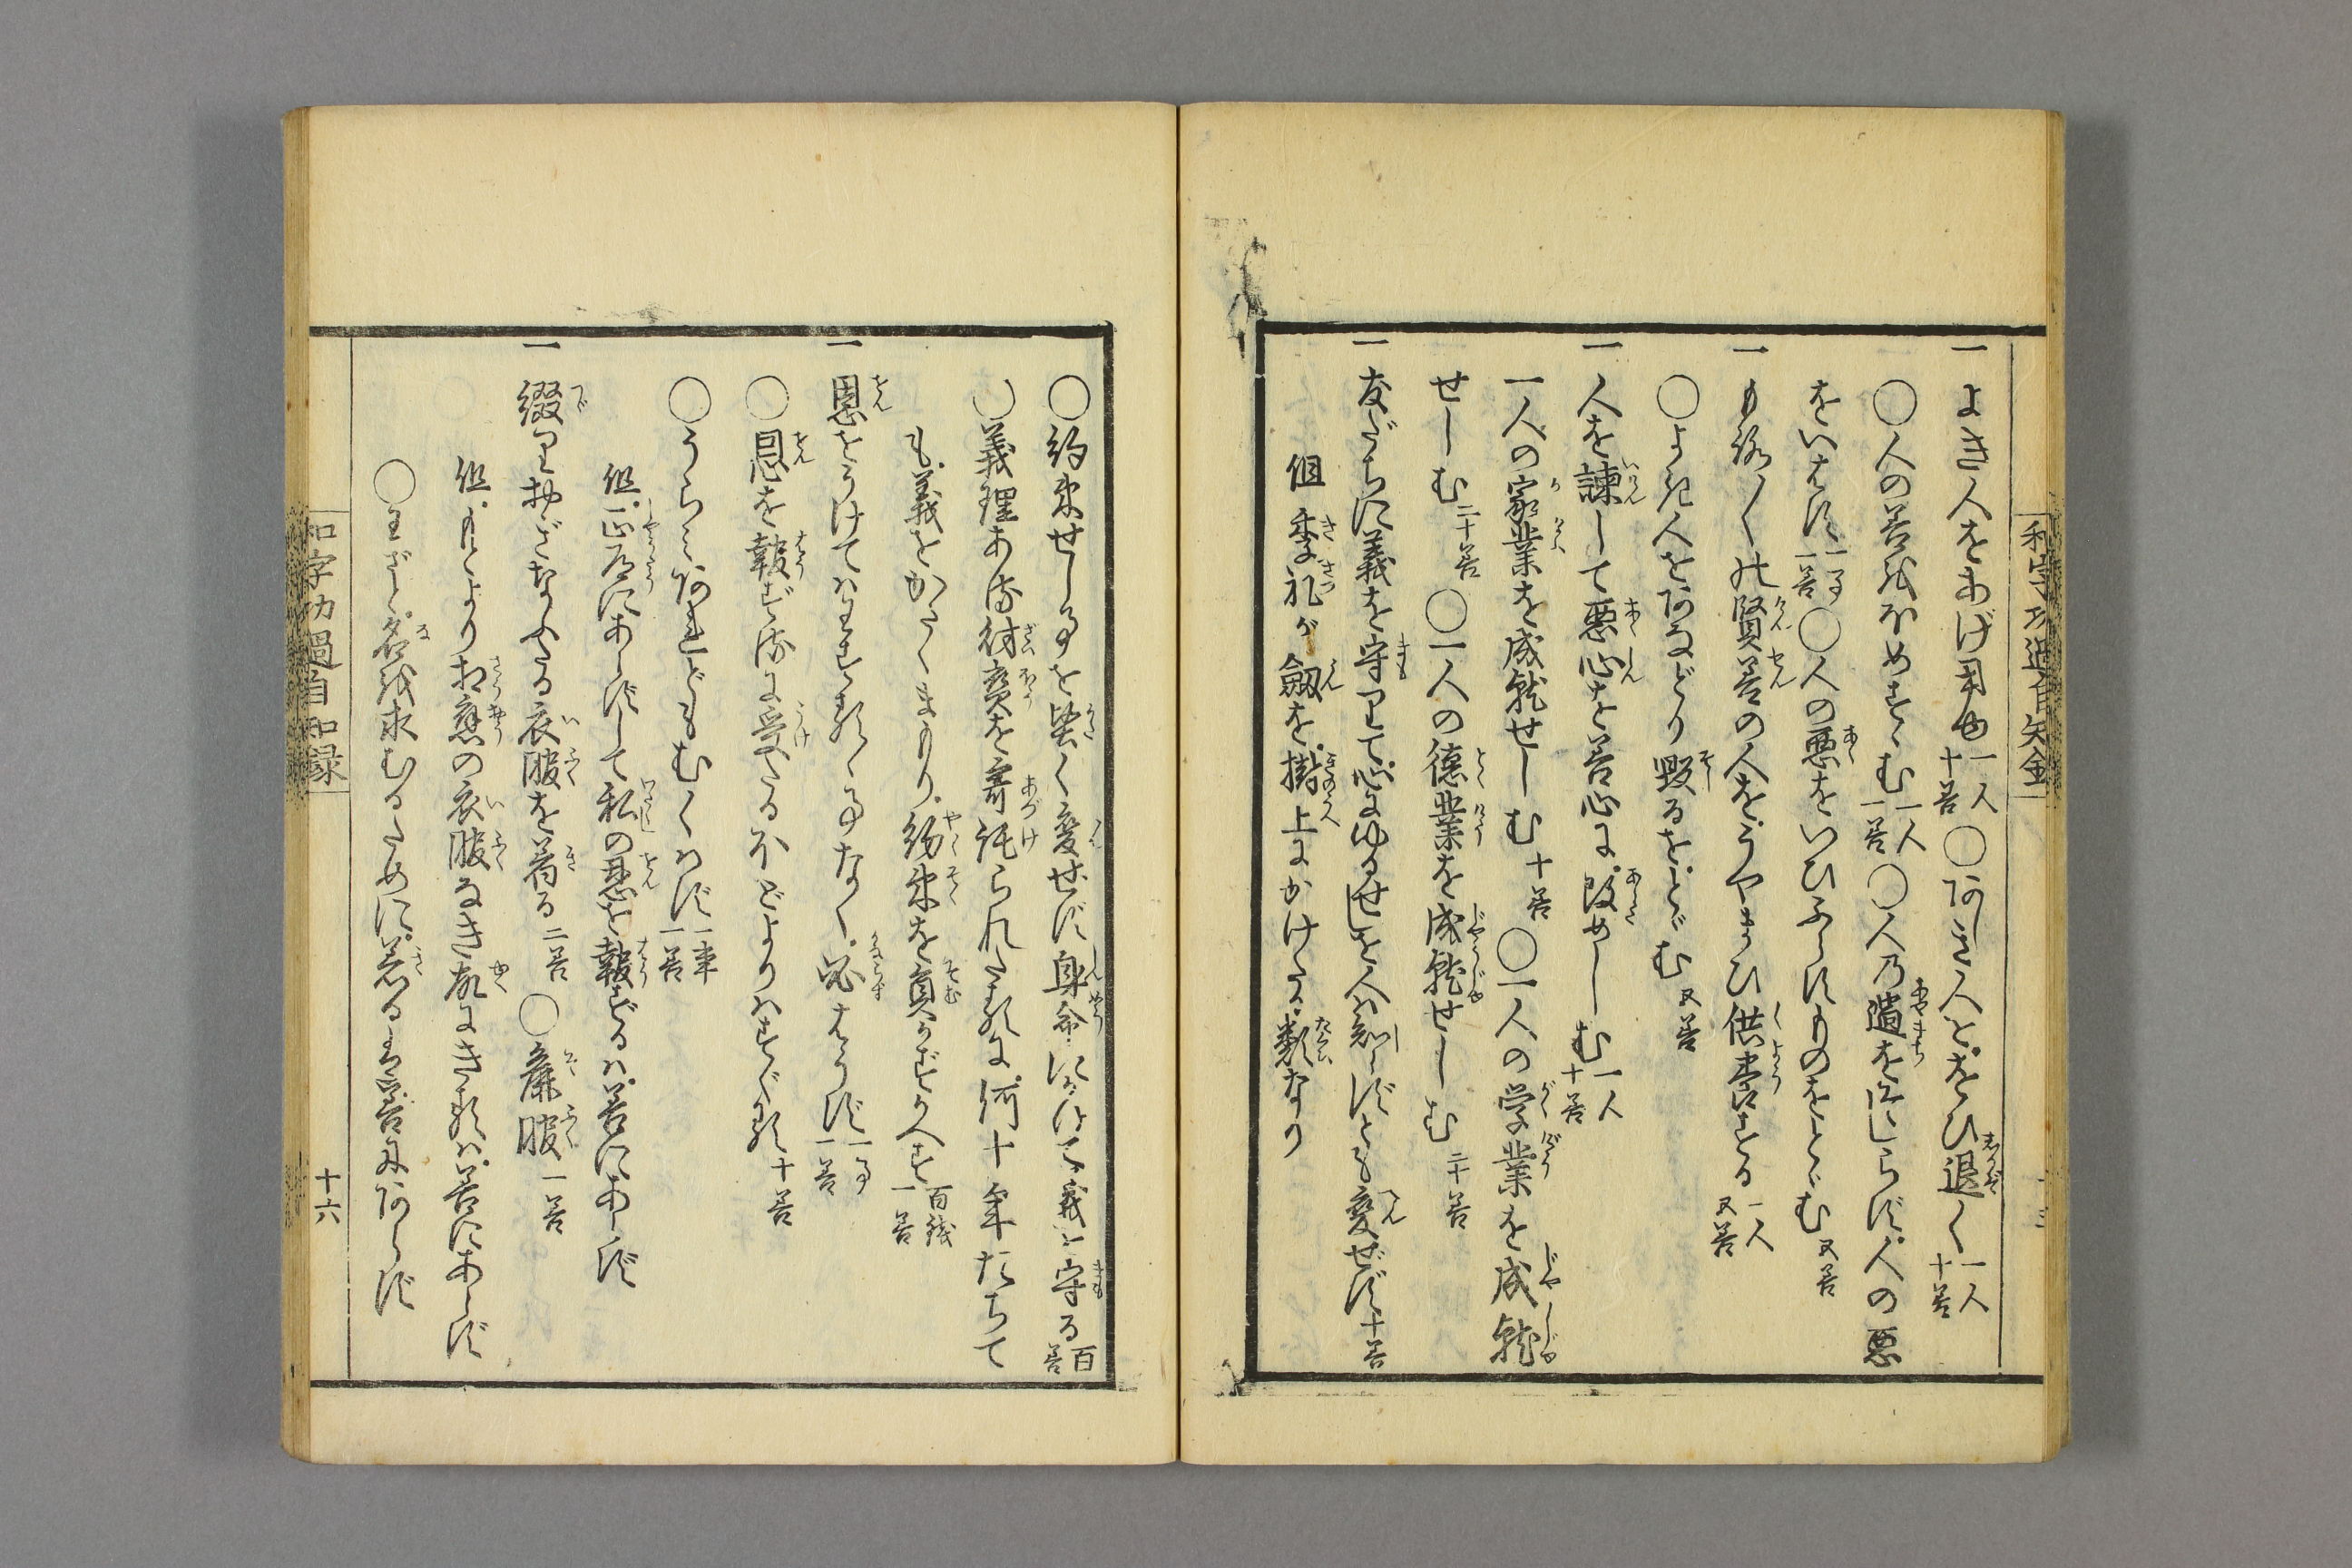 和字功過自知録
一 よき人をあげ用ゆ 一人十善 ○あしき人を。をひ退く 一人十善
○人の善をほめすゝむ 一人一善 ○人の過をたゞしらず。人の悪
をいはず 一事一善 ○人の悪をいひふらすものをとゞむ 五善
一 もろ〳〵の賢善の人を。うやまひ供養する 一人五善
○よき人をあなどり毀るを。とゞむ 五善
一 人を諫して悪心を善心に。改めしむ 一人十善
一人の家業を成就せしむ 十善 ○一人の学業を成就
せしむ 二十善 ○一人の徳業を成就せしむ 三十善
一 友だちに義を守りて。心にゆるせしを人は知らずとも変ぜず 十善
但 季札が劔を。掛上にかけたる類なり
○約束せし事を堅く変ぜず身命にかけて義を守る 百善
○義理ある財宝を寄託られたるに。何十年たちて
も。義をかたくまもり。約束を負かずかへす 百銭一善
一 恩をうけてはわするゝ事なく。必ほうず 一事一善
○恩を報ずるに受たるほどよりはすぐる 十善
○うらみあれどもむくはず 一事一善
但。正道にあらずして私の恩を報ずるは。善にあらず
一 綴りおぎなふたる衣服を着る 二善 ○麁服 一善
但。もとより相応の衣服なき故にきるは。善にあらず
○わざと名を求むるために。着るは善にあらず
和字功過自知録
十六